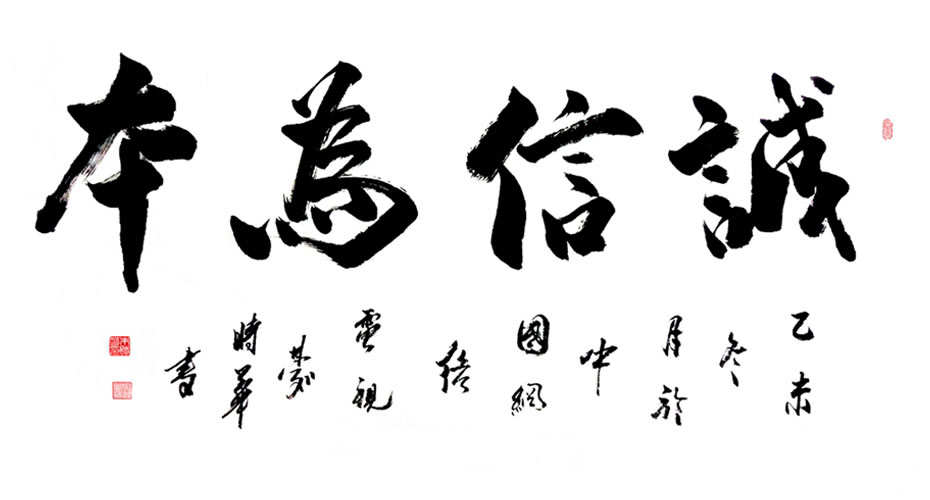 誠信為本
乙未
冬
月於
中
國網
絡
電視
時華
書